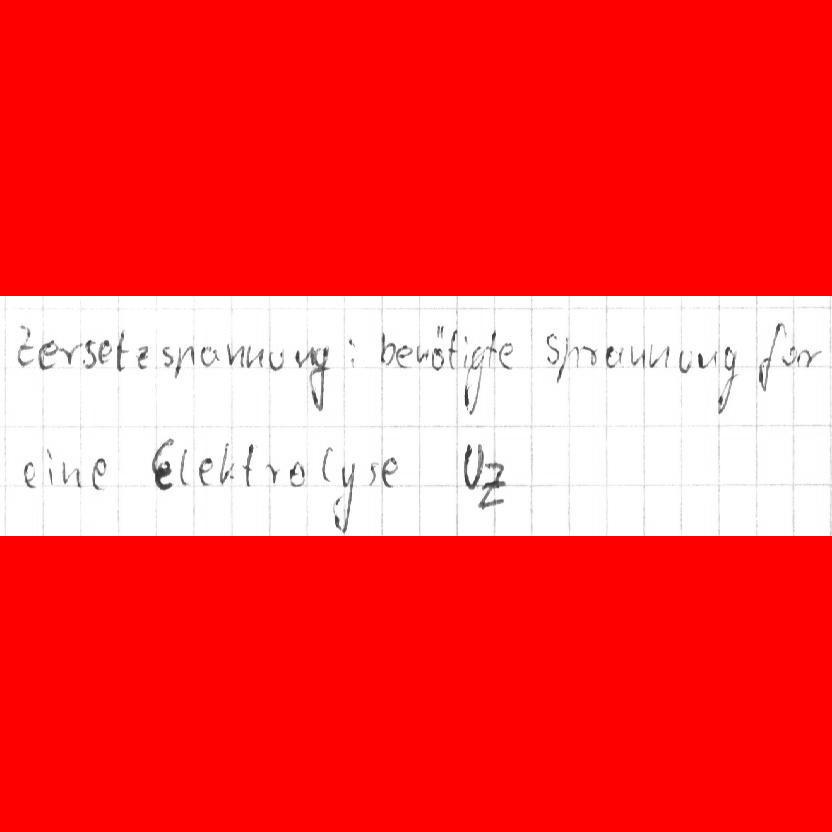 Zersetzspannung: benötigte Spannung für
eine Elektrolyse Uz